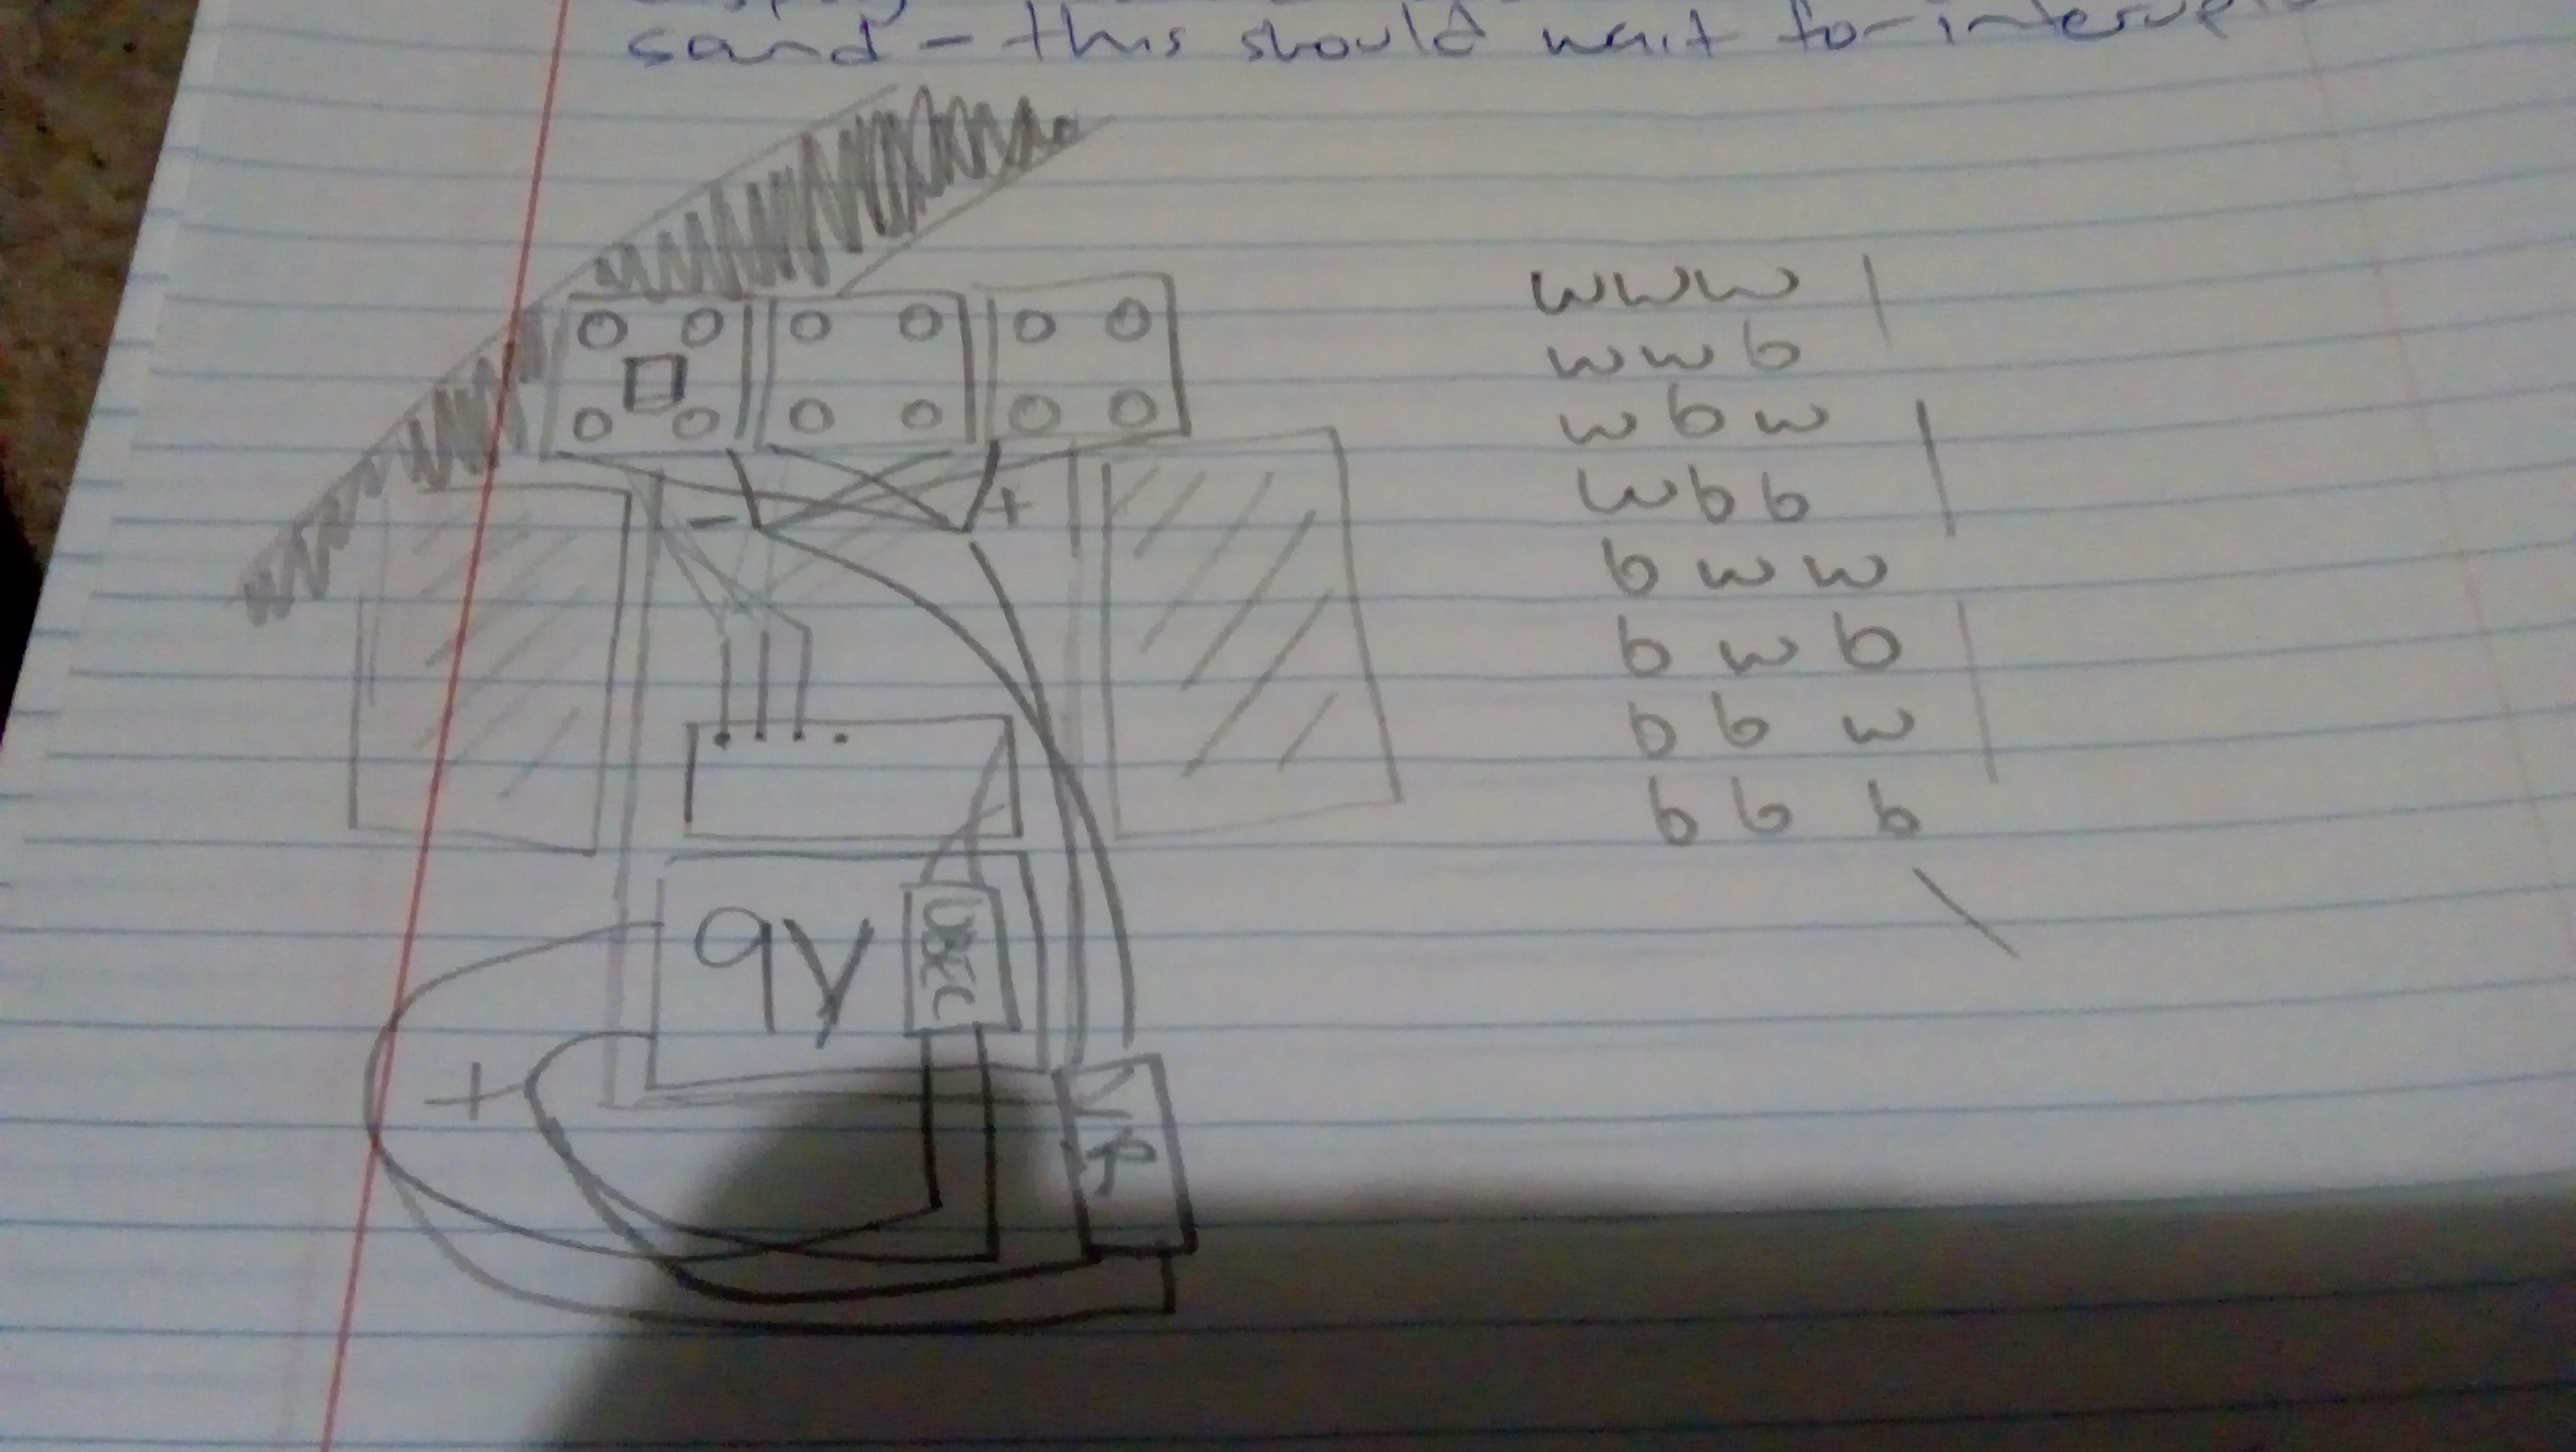 sand - this should wait for
- +
9V
UBEC
+
w w w
w w b
w b w
w b b
b w w
b w b
b b w
b b b